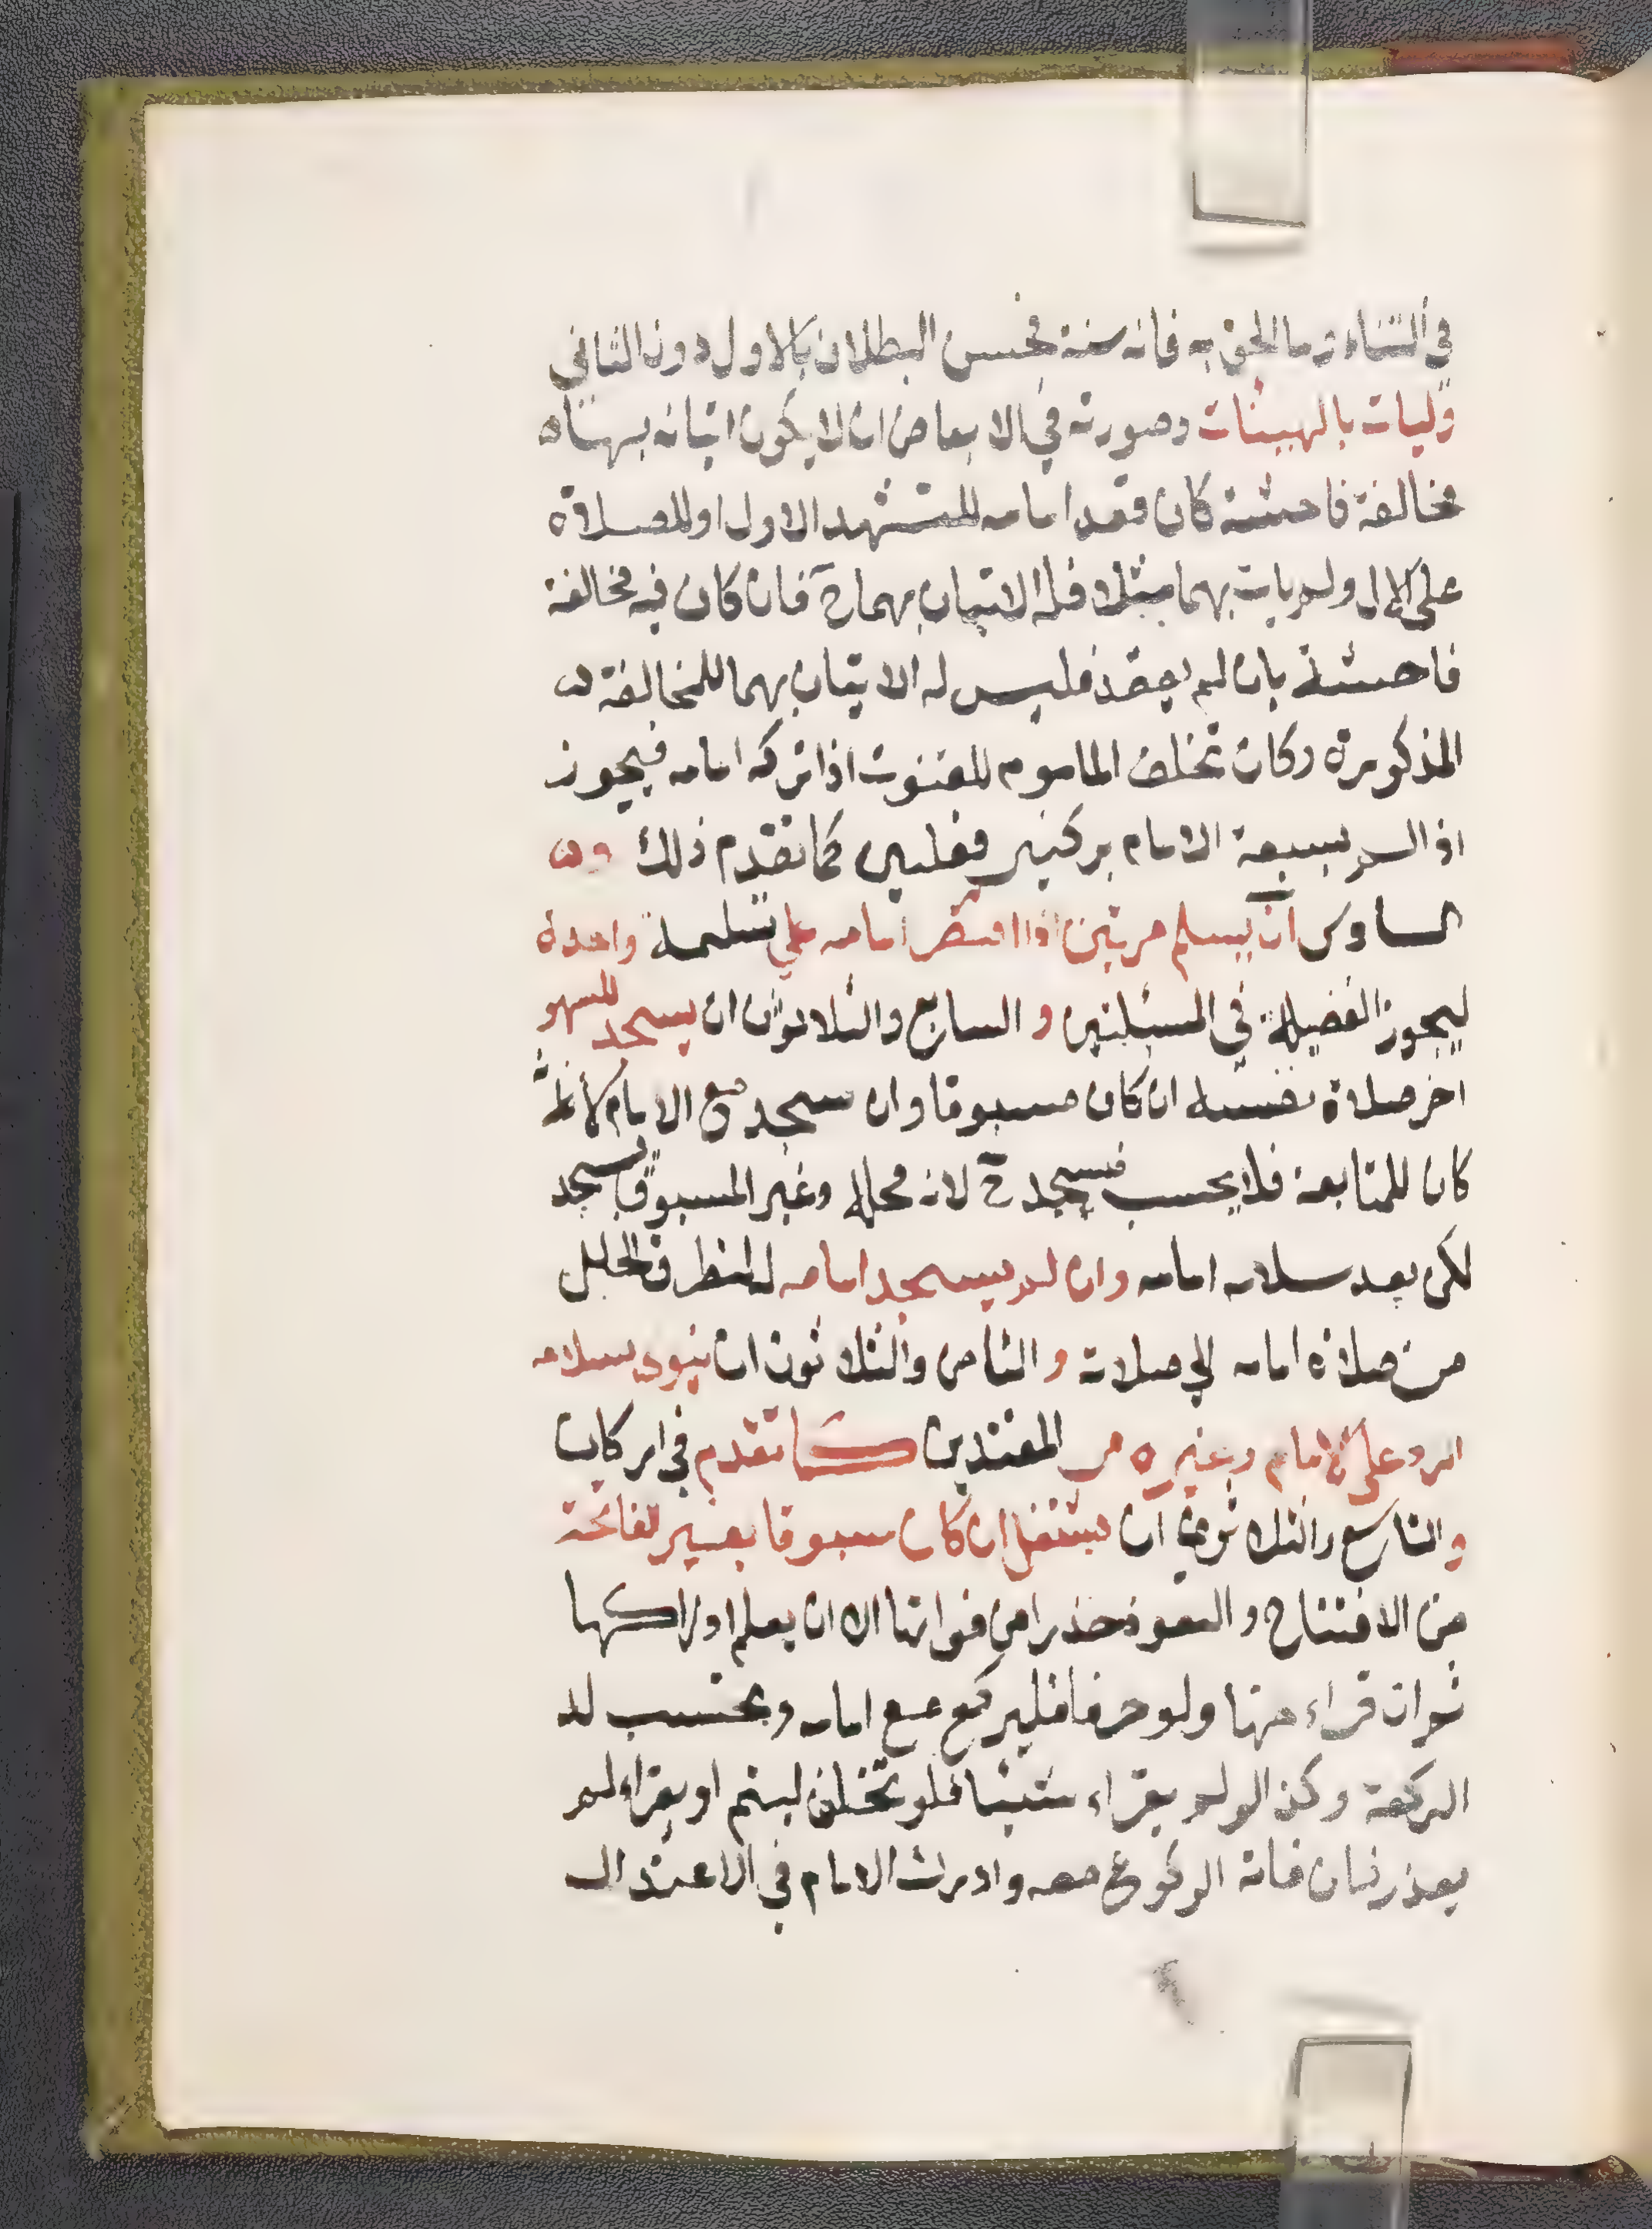 في الثناء وما الحق به فانه سنة فحسن البطلان بالاول دون الثاني
وليات بالهيئات وصورته في الابعاض ان لا يكون اتيانه بهتاه
مخالفة فاحشة كان قعد امامه للتشهد الاول او للصلاة
على الال ولم يات بهما مثلا فله الاتيان بهما ح فان كان فيه مخالفة
فاحشة بان لم يقعد فليس له الاتيان بهما للمخالفة
المذكورة وكان تخلف الماموم للقنوت اذا تركه امامه فيجوز
اذا لم يسبقه الامام بركنين فعليين كما تقدم ذلك و
السادس ان يسلم مرتين اذا اقتصر امامه على تسليمة واحدة
ليحوز الفضيلة في المسئلتين و السابع والثلاثون ان يسجد للسهو
اخر صلاة نفسه ان كان مسبوقا وان سجد مع الامام لانه
كان للمتابعة فلا يحسب فسجد ح لانه محله وغير المسبوق يسجد
لكن بعد سلام امامه وان لم يسجد امامه لتطرق الخلل
من صلاة امامه الى صلاته و الثامن والثلاثون ان ينوي بسلامه
الرد على الامام وغيره من المقتدين كما تقدم في اركان
و التاسع والثلاثون ان يشتغل ان كان مسبوقا بغير الفاتحة
من الافتتاح والتعوذ حذرا من فواتها الا ان يعلم ادراكها
ثم ان قراء منها ولو حرفا فليركع مع امامه وتحسب له
الركعة وكذا لو لم يقراء شيئا فلو تخلف ليتم او يقراء لم
يعذر فان فاته الركوع معه وادرك الامام في الاعتدال